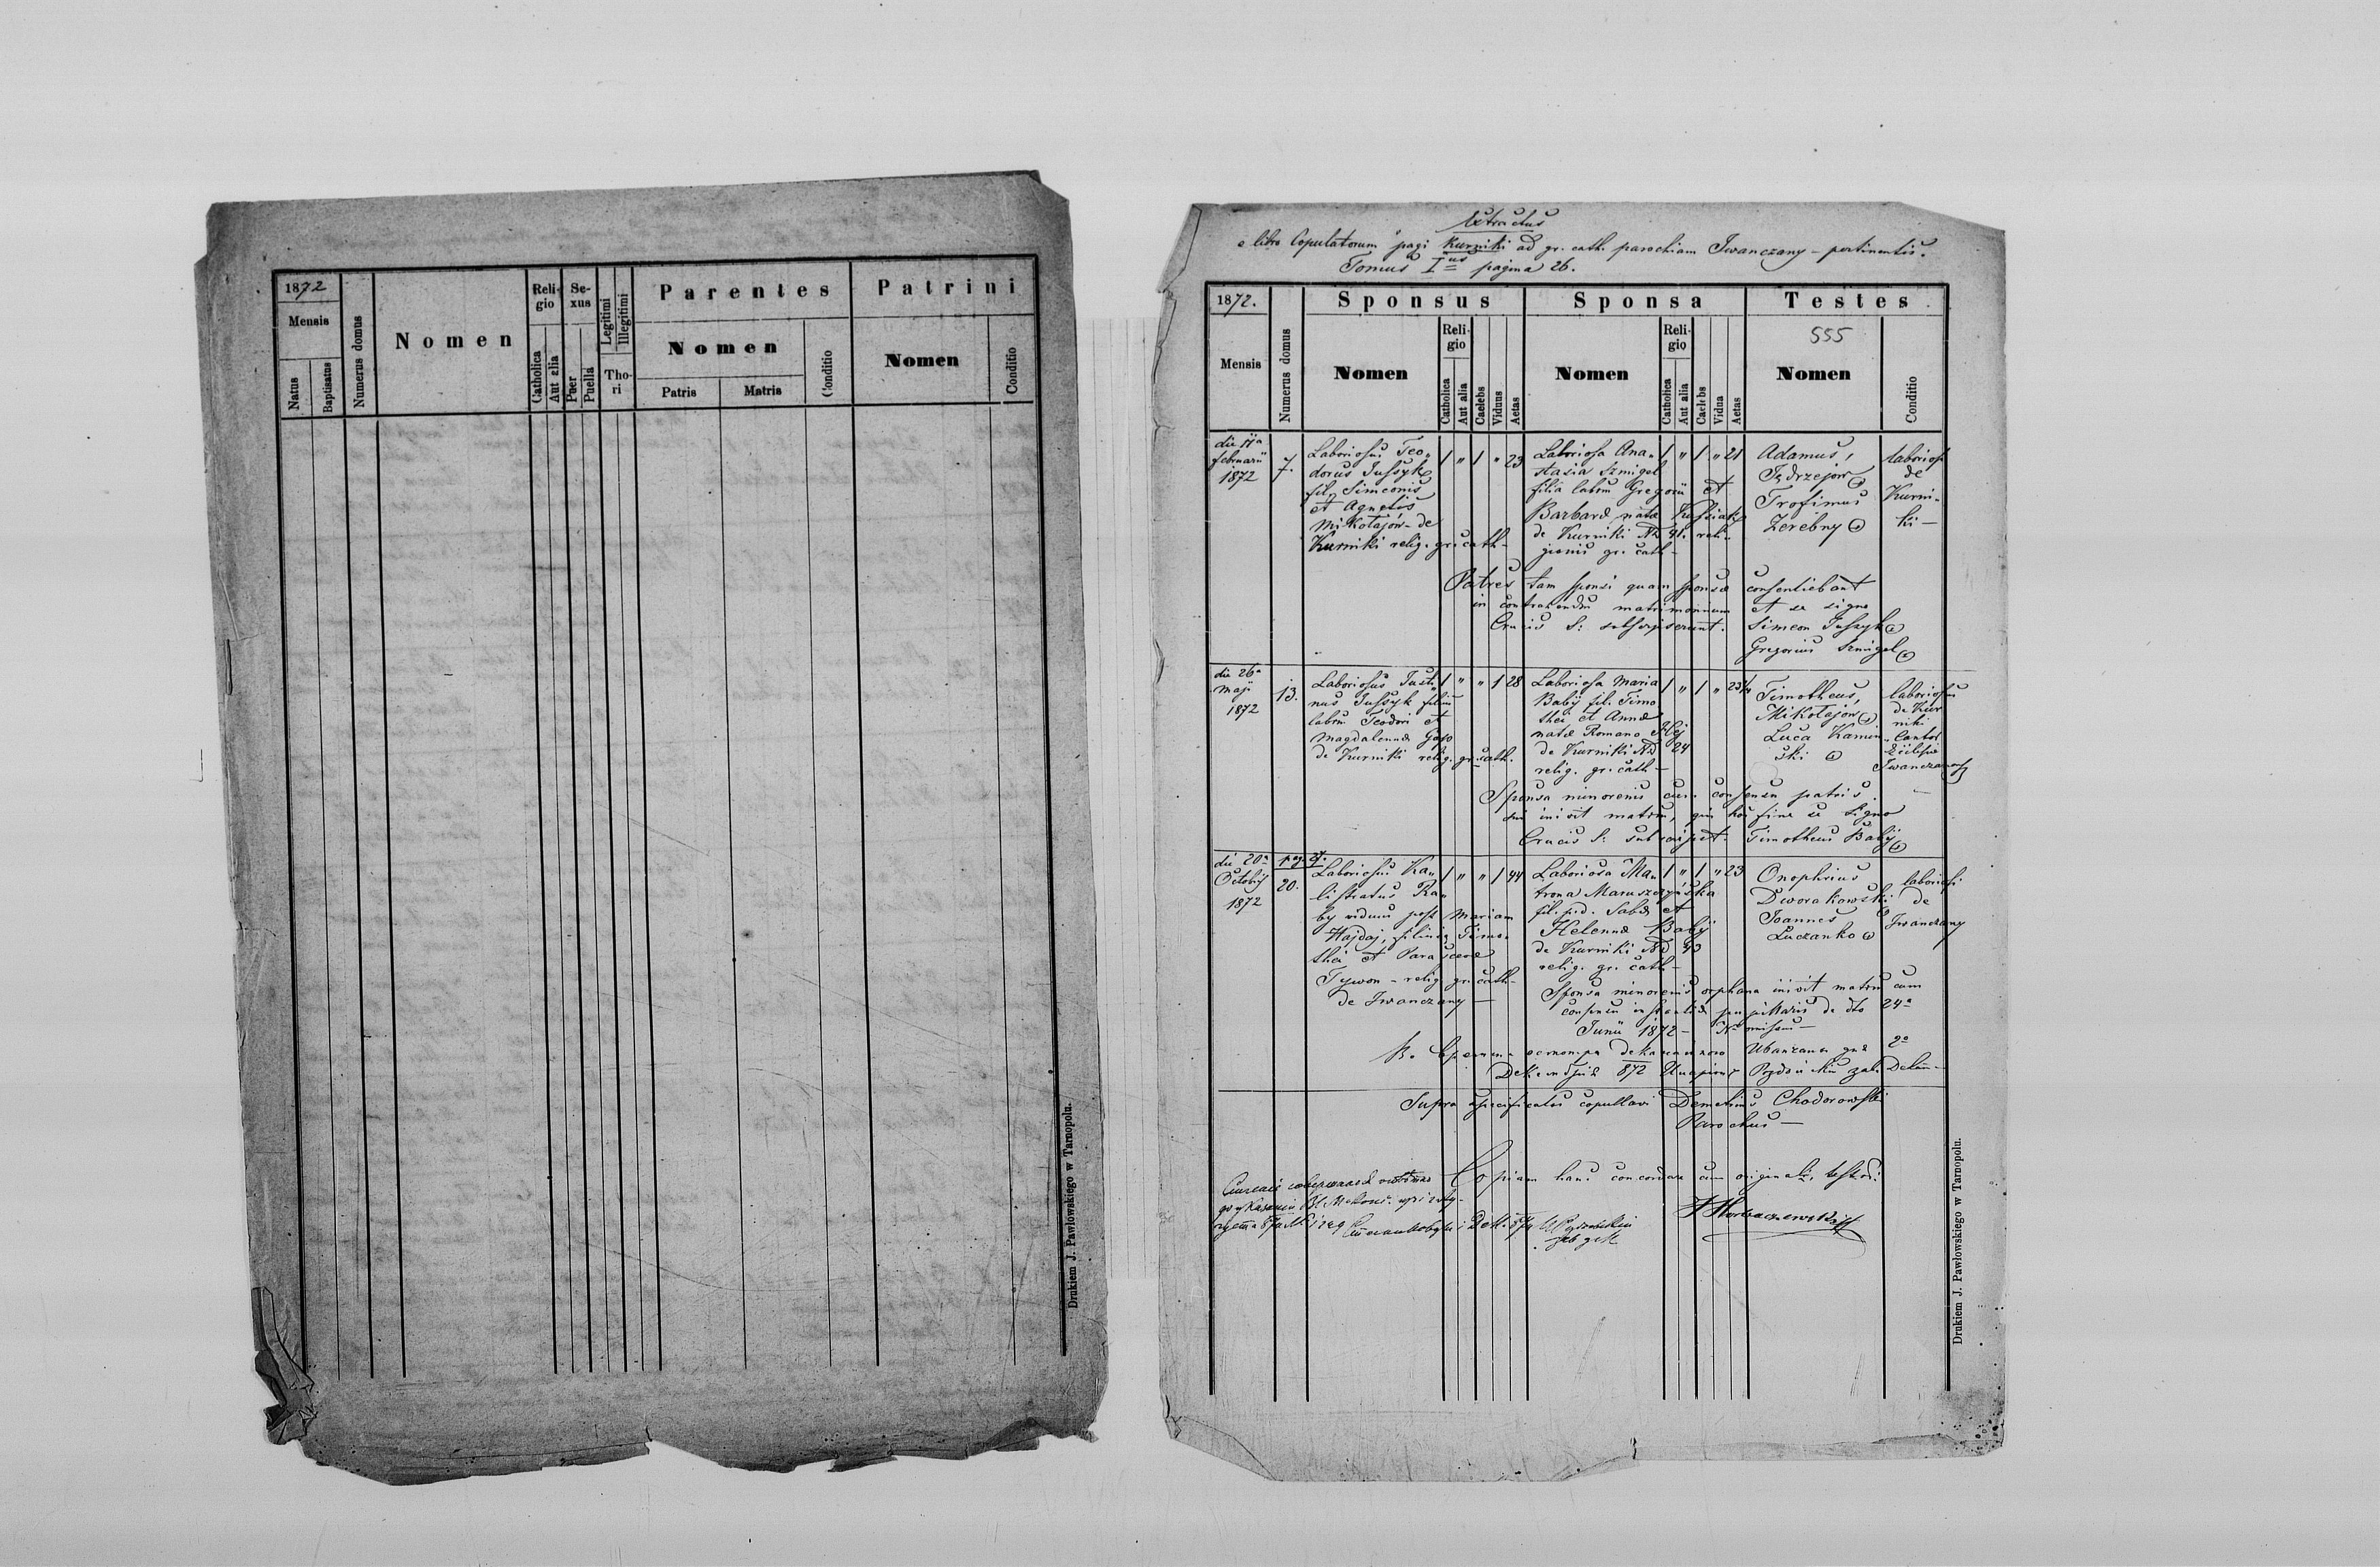 1872
Mensis
Natus
Baptisatus
Numerus domus
Nomen
Religio
Catholica
Aut alia
Sexus
Puer
Puella
Legitimi
Illegitimi
Thori
Parentes
Nomen
Patris
Matris
Conditio
Patrini
Nomen
Conditio
Drukiem J. Pawłowskiego w Tarnopolu.
Extractus
e libro Copulatorum pagi Kurniki ad gr. cath. parochiam Iwanczany - pertinentis.
Tomus I us pagina 26.
1872.
Mensis
Numerus domus
Sponsus
Nomen
Religio
Catholica
Aut alia
Caelebs
Viduus
Aetas
Sponsa
Nomen
Religio
Catholica
Aut alia
Caelebs
Vidua
Aetas
Testes
555
Nomen
Conditio
die 17a
februarii
1872
7.
Laboriosus Teo„
dorus Juszyk
fil. Simeonis
et Agnetis
Mikołajów - de
Kurniki relig. gr. cath -
1 „ 1 „ 23
Laboriosa Ana„
stasia Szmigel
filia labru Gregorii et
Barbarae natae
de Kurniki No 41. reli„
gionis gr. cath -
1 „ 1 „ 21
Adamus,
Jędrzejow
Trofimus
Zerebny
laboriosi
de
Kurni„
ki —
Patres tam sponsi quam sponsae consentiebant
in contrahendu matrimonium et se signo
Crucis S: subscripserunt. Simeon Juszyk
Gregorius Szmigel
die 26a
Maji
1872
13.
Laboriosus Justi„
nus Juszyk filius
labru Teodori et
Magdalennae
de Kurniki relig. gr. cath.
1 „ „ 1 28
Laboriosa Maria
Babij fil. Timo
thei et Annae
natae Romano
de Kurniki No 24
relig. gr. cath —
1 „ 1 „
Timotheus,
Mikołajow
Luca Kamin„
ski
laboriosus
de Kur
niki
Cantor
Iwanczany
Sponsa minorenis cum consensu patris
sui inivit matrm, qui hoc fine se signo
Crucis S: subscripsit. Timotheus Babij
die 20a
Octobris
1872
pag. 27.
20.
Laboriosus Ka„
listratus Ra„
by viduus post Mariam
Hajdaj, filius Timo„
thei et Parascevae
Tywon - relig. gr. cath -
de Iwanczany —
1 „ „ 1 44
Laboriosa Ma„
trona Maruszczyńska
fil. p.d. Sabae et
Helennae Babij
de Kurniki No 43
relig. gr. cath -
1 „ 1 „ 23
Onophrius
Dworakowski
Joannes
Łuczanko
laboriosi
de
Iwanczany
Sponsa minorenis orphana inivit matrm cum
consensu pupillaris de dto 24a
Junii 1872 —
872
Supra specificatos copullavi Demetrius Chodorowski
Parochus —
Copiam hanc concordare cum originali, testor:
Drukiem J. Pawłowskiego w Tarnopolu.